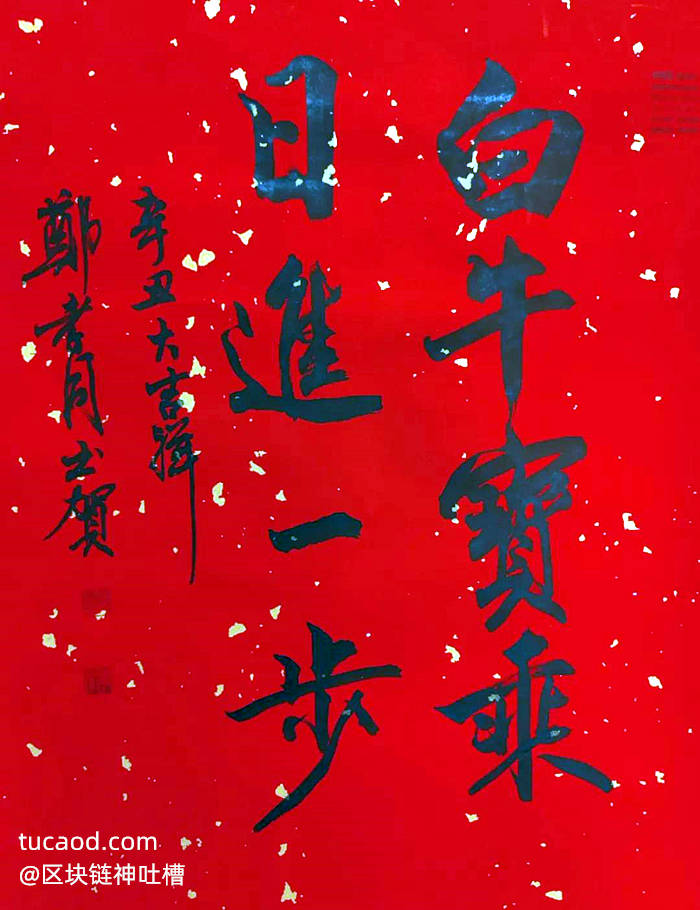 白牛寶乘
日進一步
辛丑大吉祥
鄭孝同书賀
tucaod.com
@区块链神吐槽